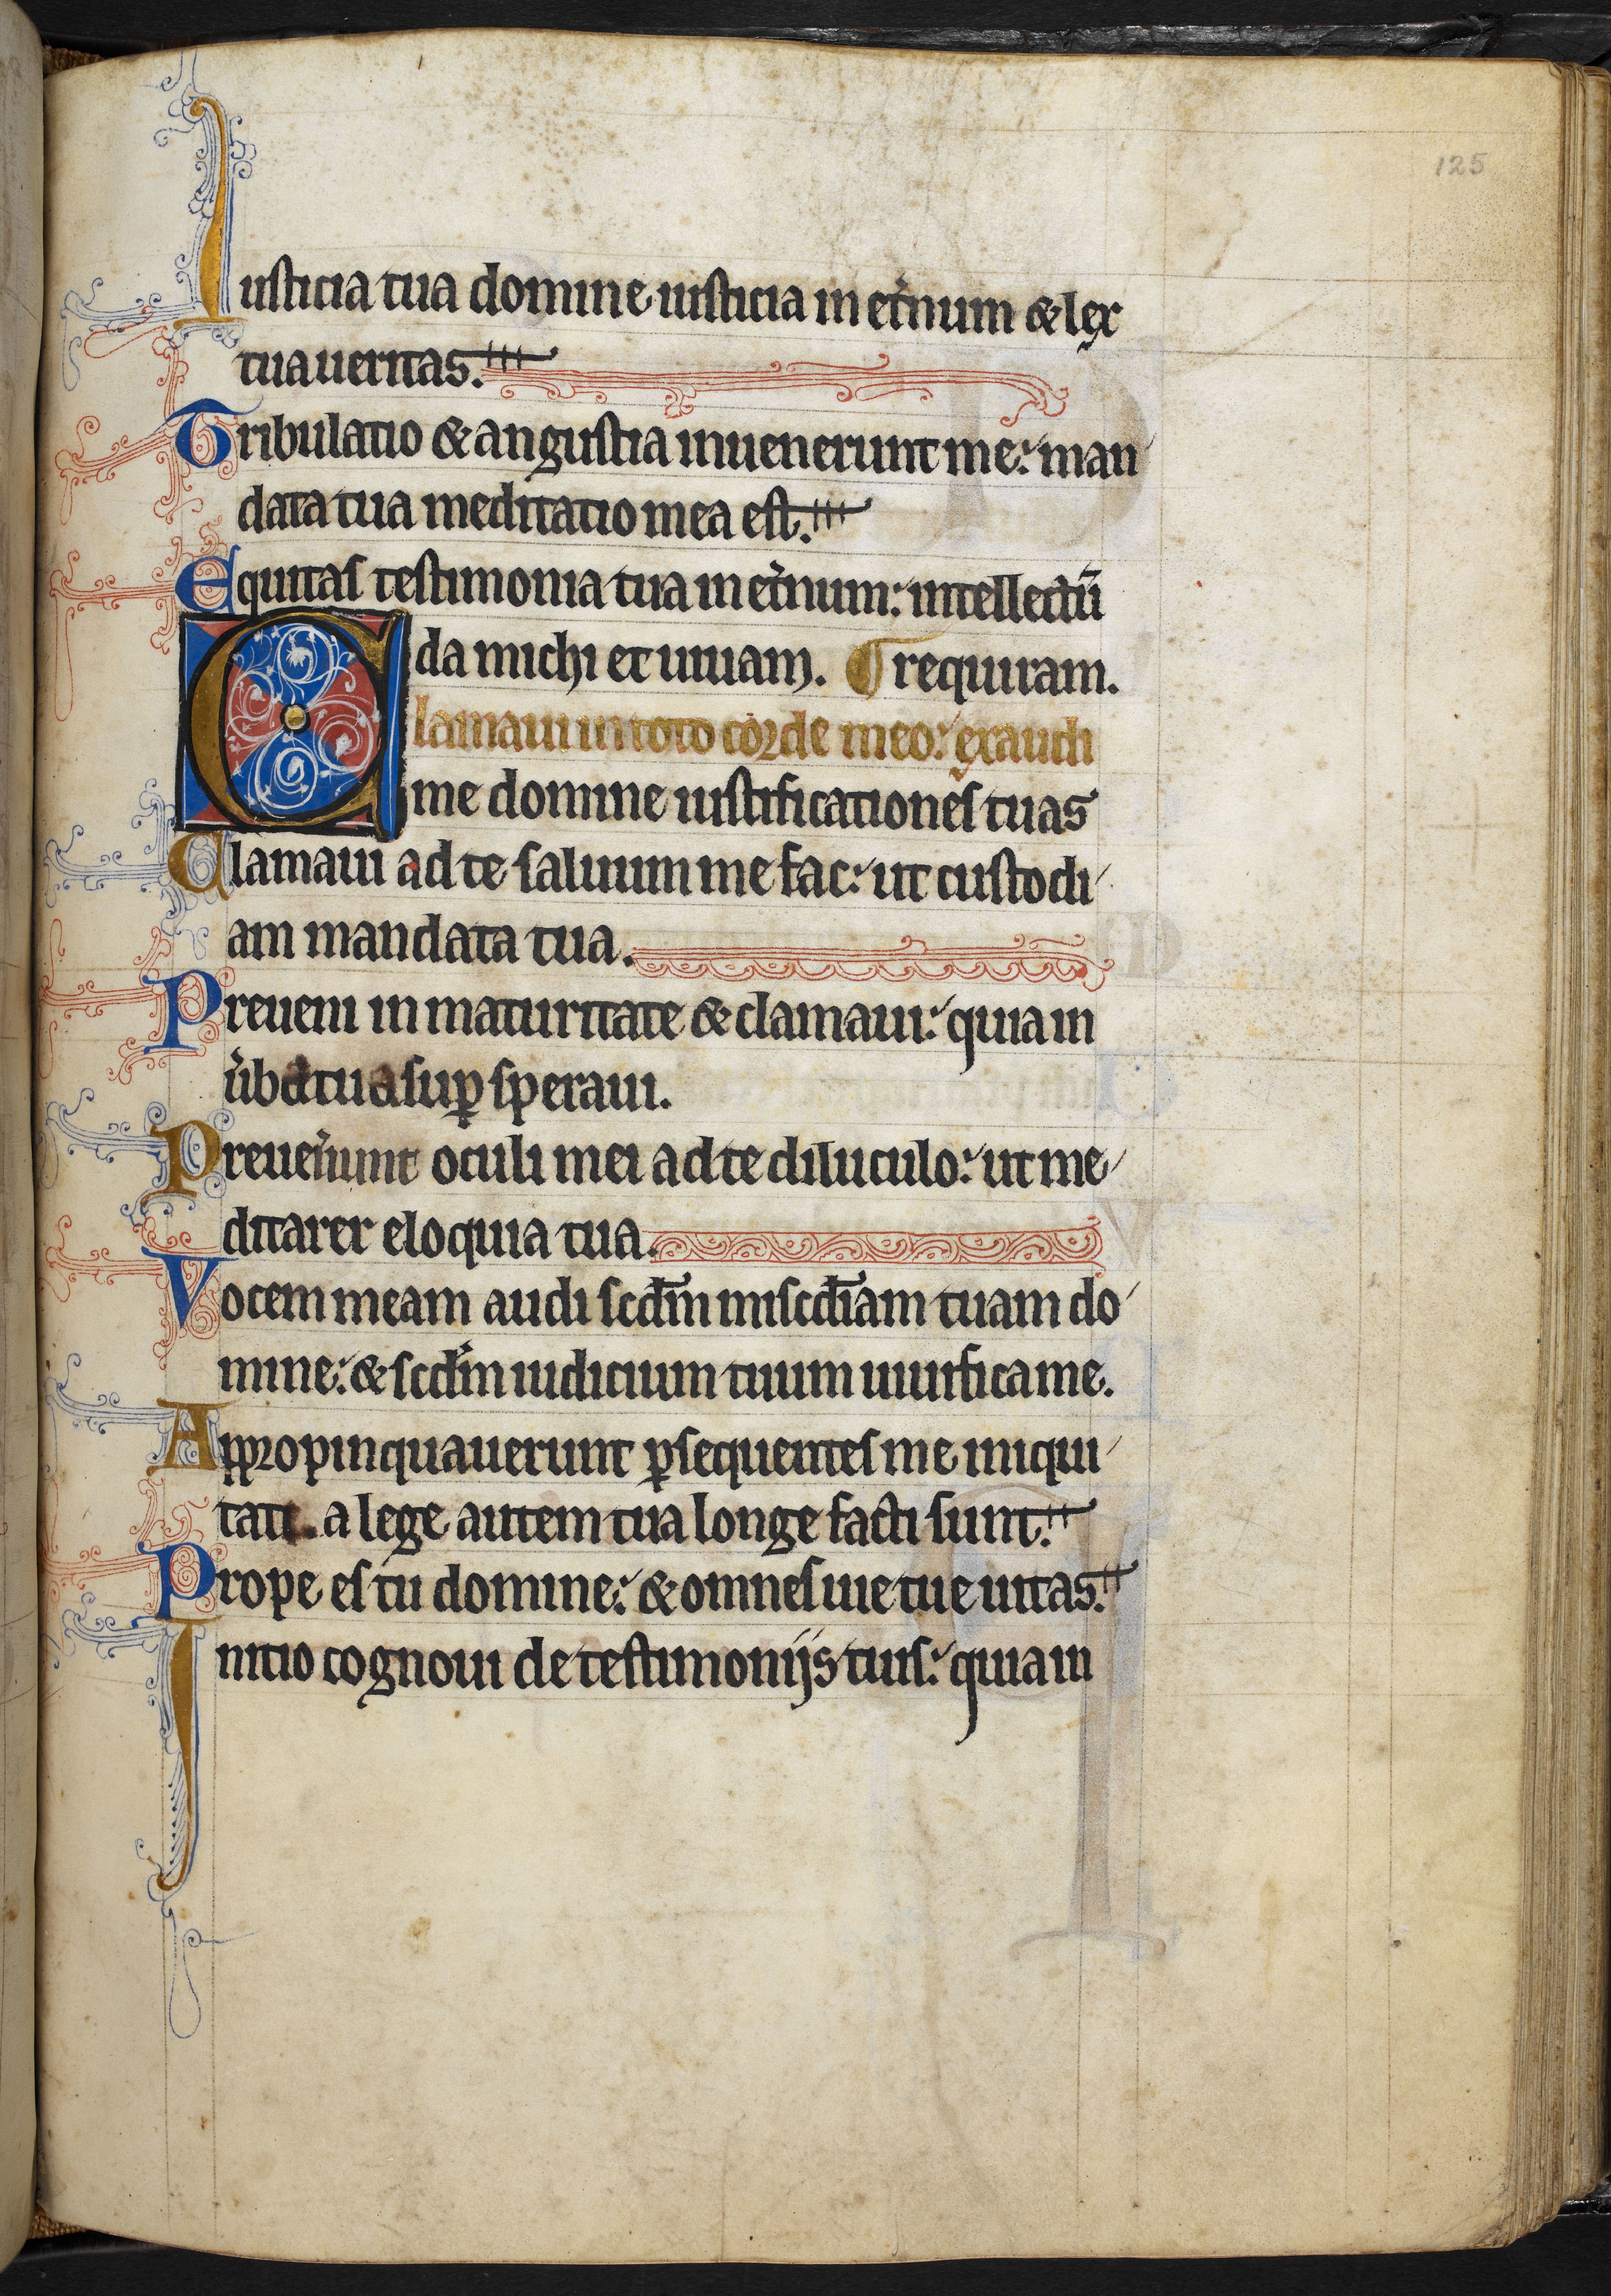 125
Iusticia tua domine iusticia in et̉num & lex
tua ueritas.
Tribulatio & angustia inuenerunt me: man
data tua meditatio mea est.
Equitas testimonia tua in et̉num: intellectū
da michi et uiuam. requiram.
Clamaui in toto corde meo: exaudi
me domine iustificationes tuas
Clamaui ad te saluum me fac: ut custodi
am mandata tua.
Preueni in maturitate & clamaui: quia in
ủba tua sup̱ speraui.
Preuen̉unt oculi mei ad te diluculo: ut me
ditarer eloquia tua.
Vocem meam audi scd̄m misc̄diam tuam do
mine: & scd̄m iudicium tuum uiuifica me.
Appropinquauerunt ꝑsequentes me iniqui
tati. a lege autem tua longe facti sunt.
Prope es tu domine: & omnes uie tue uitas.
Initio cognoui de testimonijs tuis: quia in